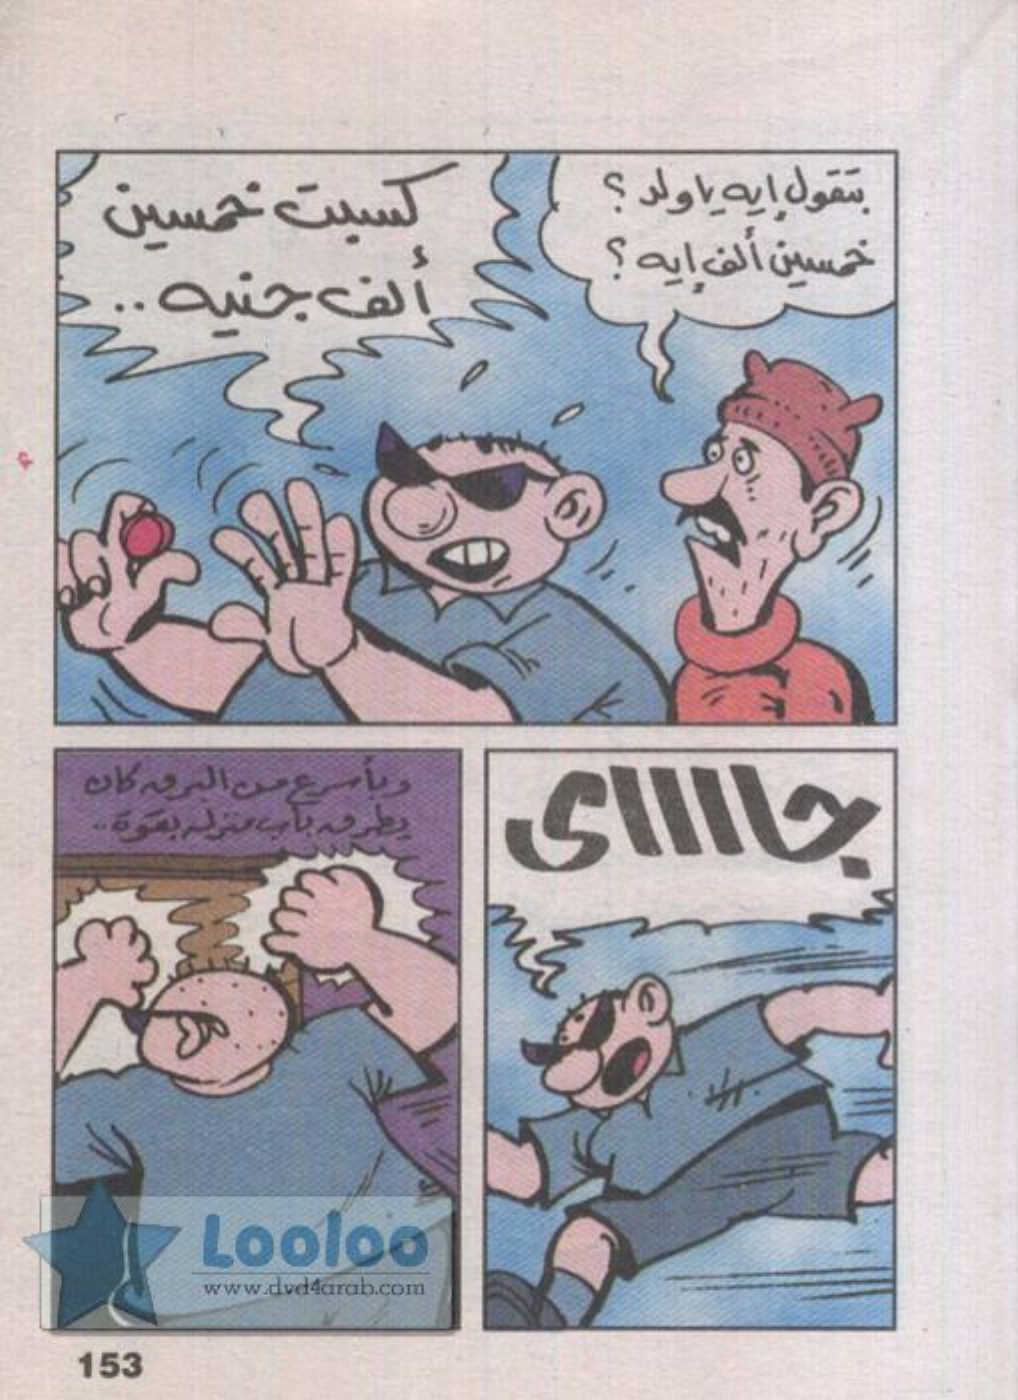 بتقول إيه يا ولد ؟
خمسين ألف إيه ؟
كسبت خمسين
ألف جنيه ..
جااااای
وبأسرع من البرق كان
يطرق باب منزله بقوة ..
Looloo
www.dvd4arab.com
153